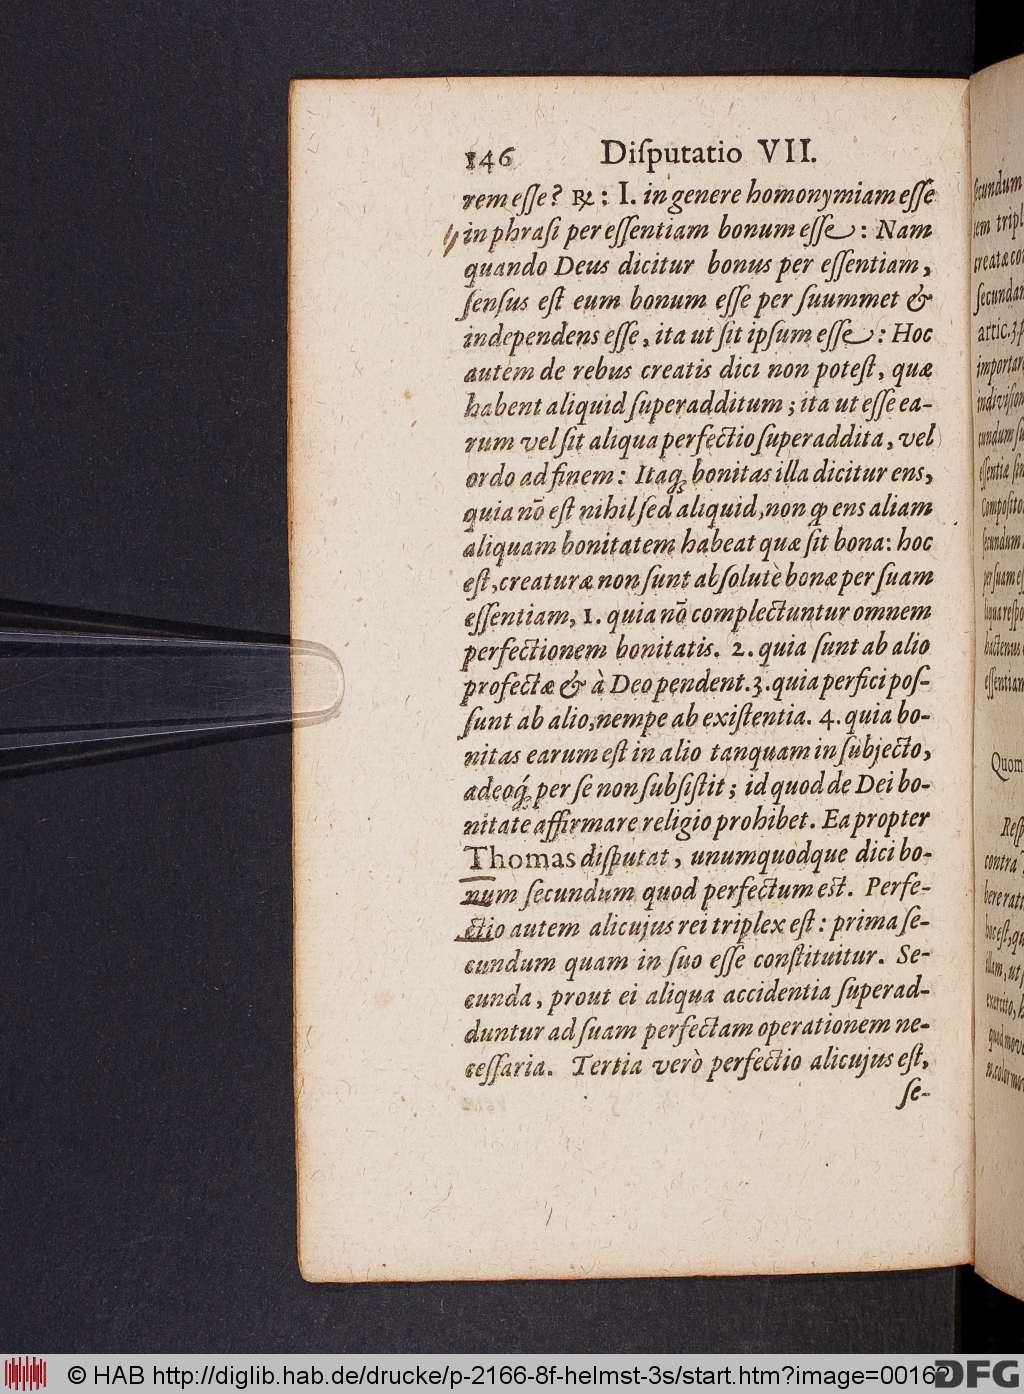 146 Diſputatio VII.
rem eſſe? ℞: I. in genere homonymiam eſſe
in phraſi per eſſentiam bonum eſſe: Nam
quando Deus dicitur bonus per eſſentiam,
ſenſus eſt eum bonum eſſe per ſuummet &
independens eſſe, ita ut ſit ipſum eſſe: Hoc
autem de rebus creatis dici non poteſt, quæ
habent aliquid ſuperadditum; ita ut eſſe ea-
rum vel ſit aliqua perfectio ſuperaddita, vel
ordo ad finem: Itaq; bonitas illa dicitur ens,
quia nõ eſt nihil ſed aliquid, non ꝙ ens aliam
aliquam bonitatem habeat quæ ſit bona: hoc
eſt, creaturæ non ſunt abſolutè bonæ per ſuam
eſſentiam, 1. quia nõ complectuntur omnem
perfectionem bonitatis. 2. quia ſunt ab alio
profectæ & à Deo pendent. 3. quia perfici poſ-
ſunt ab alio, nempe ab exiſtentia. 4. quia bo-
nitas earum eſt in alio tanquam in ſubjecto,
adeoq́; per ſe non ſubſiſtit; id quod de Dei bo-
nitate affirmare religio prohibet. Ea propter
Thomas diſputat, unumquodque dici bo-
num ſecundum quod perfectum est. Perfe-
ctio autem alicujus rei triplex eſt: prima ſe-
cundum quam in ſuo eſſe conſtituitur. Se-
cunda, prout ei aliqua accidentia ſuperad-
duntur ad ſuam perfectam operationem ne-
ceſſaria. Tertia verò perfectio alicujus eſt,
ſe-
ſecundum
tripl
creatæ
ſecundar
artic. 3
importar
indiviſion
cundum
eſſentiæ
Compoſito
ſecundum
per ſuam
eſſentiam
Quom
Reſp
contra
bere rati
hoc eſt, qu
illam, ut
exercito,
quod move
© HAB http://diglib.hab.de/drucke/p-2166-8f-helmst-3s/start.htm?image=00162
DFG